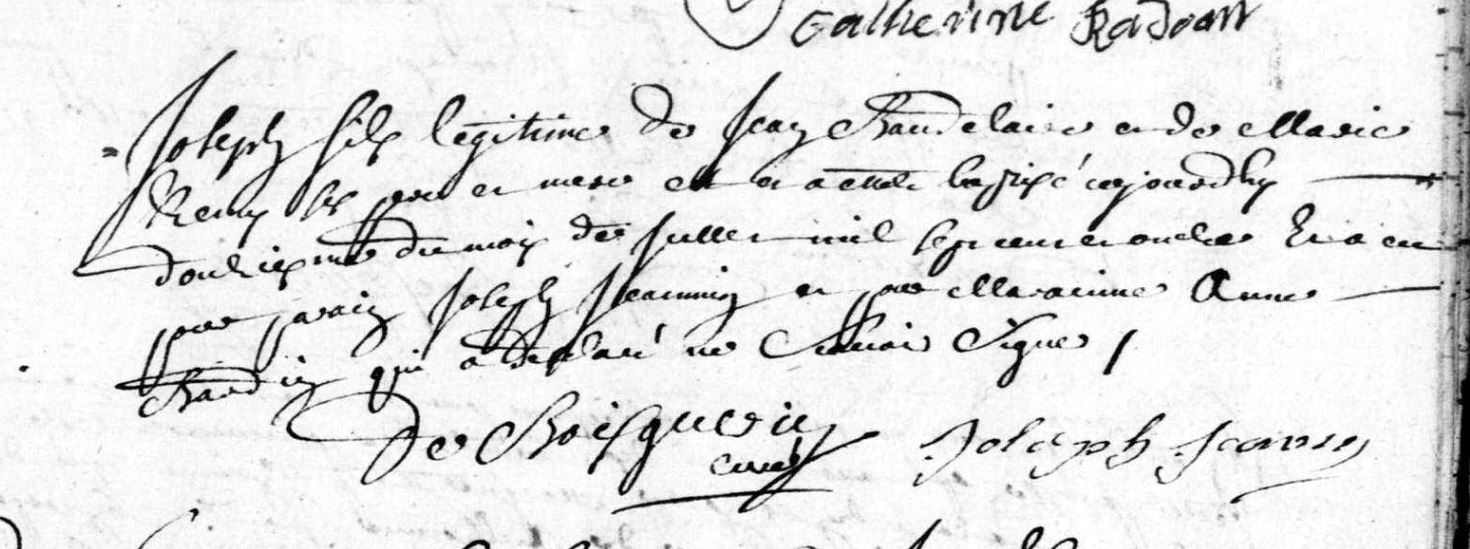 Catherine Radoan
Joseph fils legitime de Jean Baudelaire et de Marie
Remy ses pere et mere est et a esté baptisé aujourdhuy
douziesme du mois de Juillet mil sept cent et onze Et a eu
pour parain Joseph Jeannin et pour Maraine Anne
Baudin qui a declaré ne scavoir signer /
De Boisguerin Joseph Jeannin
curé